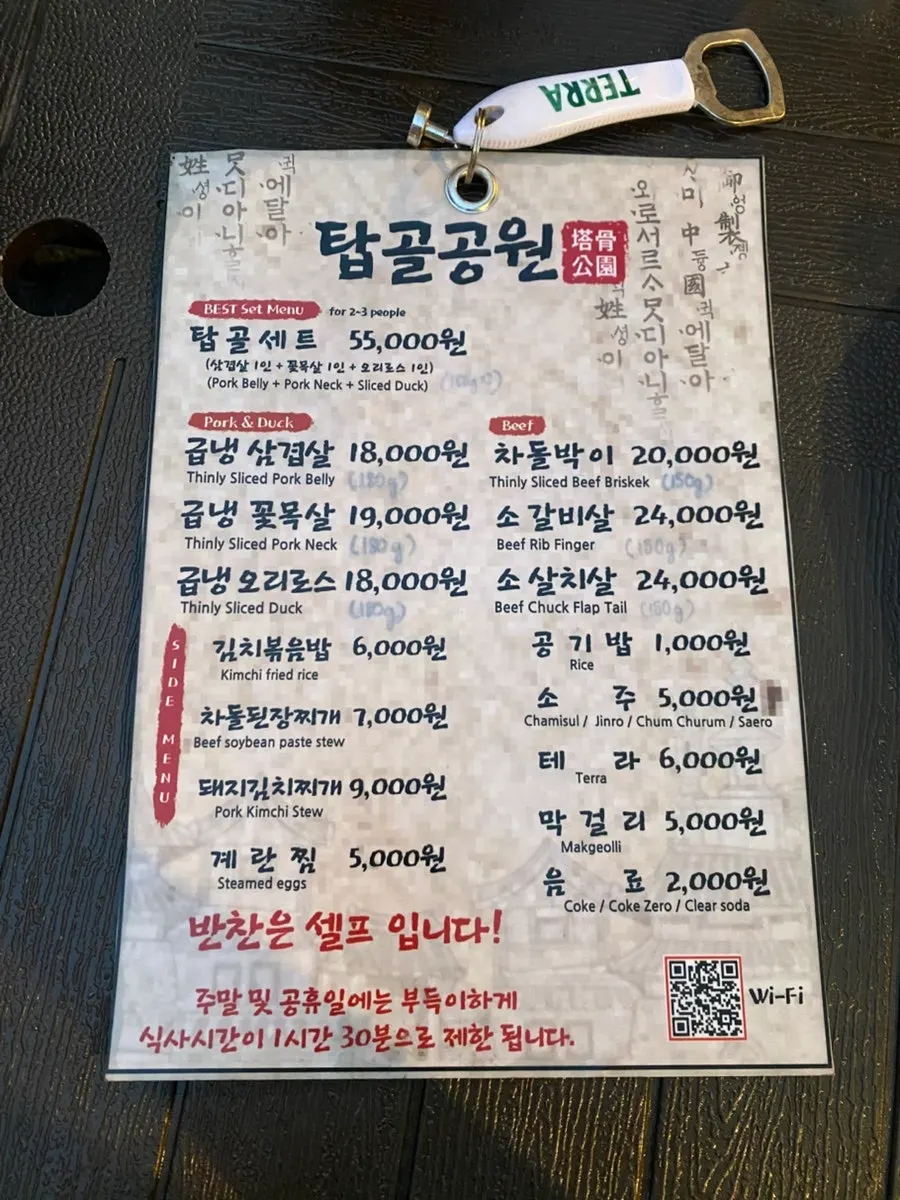 TERRA
탑골공원
塔骨
公園
BEST Set Menu for 2~3 people
탑골세트 55,000원
(삼겹살 1인 + 꽃목살 1인 + 오리로스 1인)
(Pork Belly + Pork Neck + Sliced Duck)
Pork & Duck
급냉 삼겹살 18,000원
Thinly Sliced Pork Belly (180g)
급냉 꽃목살 19,000원
Thinly Sliced Pork Neck (180g)
급냉 오리로스 18,000원
Thinly Sliced Duck (180g)
Beef
차돌박이 20,000원
Thinly Sliced Beef Briskek (150g)
소 갈비살 24,000원
Beef Rib Finger (150g)
소 살치살 24,000원
Beef Chuck Flap Tail (150g)
SIDE MENU
김치볶음밥 6,000원
Kimchi fried rice
차돌된장찌개 7,000원
Beef soybean paste stew
돼지김치찌개 9,000원
Pork Kimchi Stew
계란찜 5,000원
Steamed eggs
공기밥 1,000원
Rice
소주 5,000원
Chamisul / Jinro / Chum Churum / Saero
테라 6,000원
Terra
막걸리 5,000원
Makgeolli
음료 2,000원
Coke / Coke Zero / Clear soda
반찬은 셀프 입니다!
주말 및 공휴일에는 부득이하게
식사시간이 1시간 30분으로 제한 됩니다.
Wi-Fi